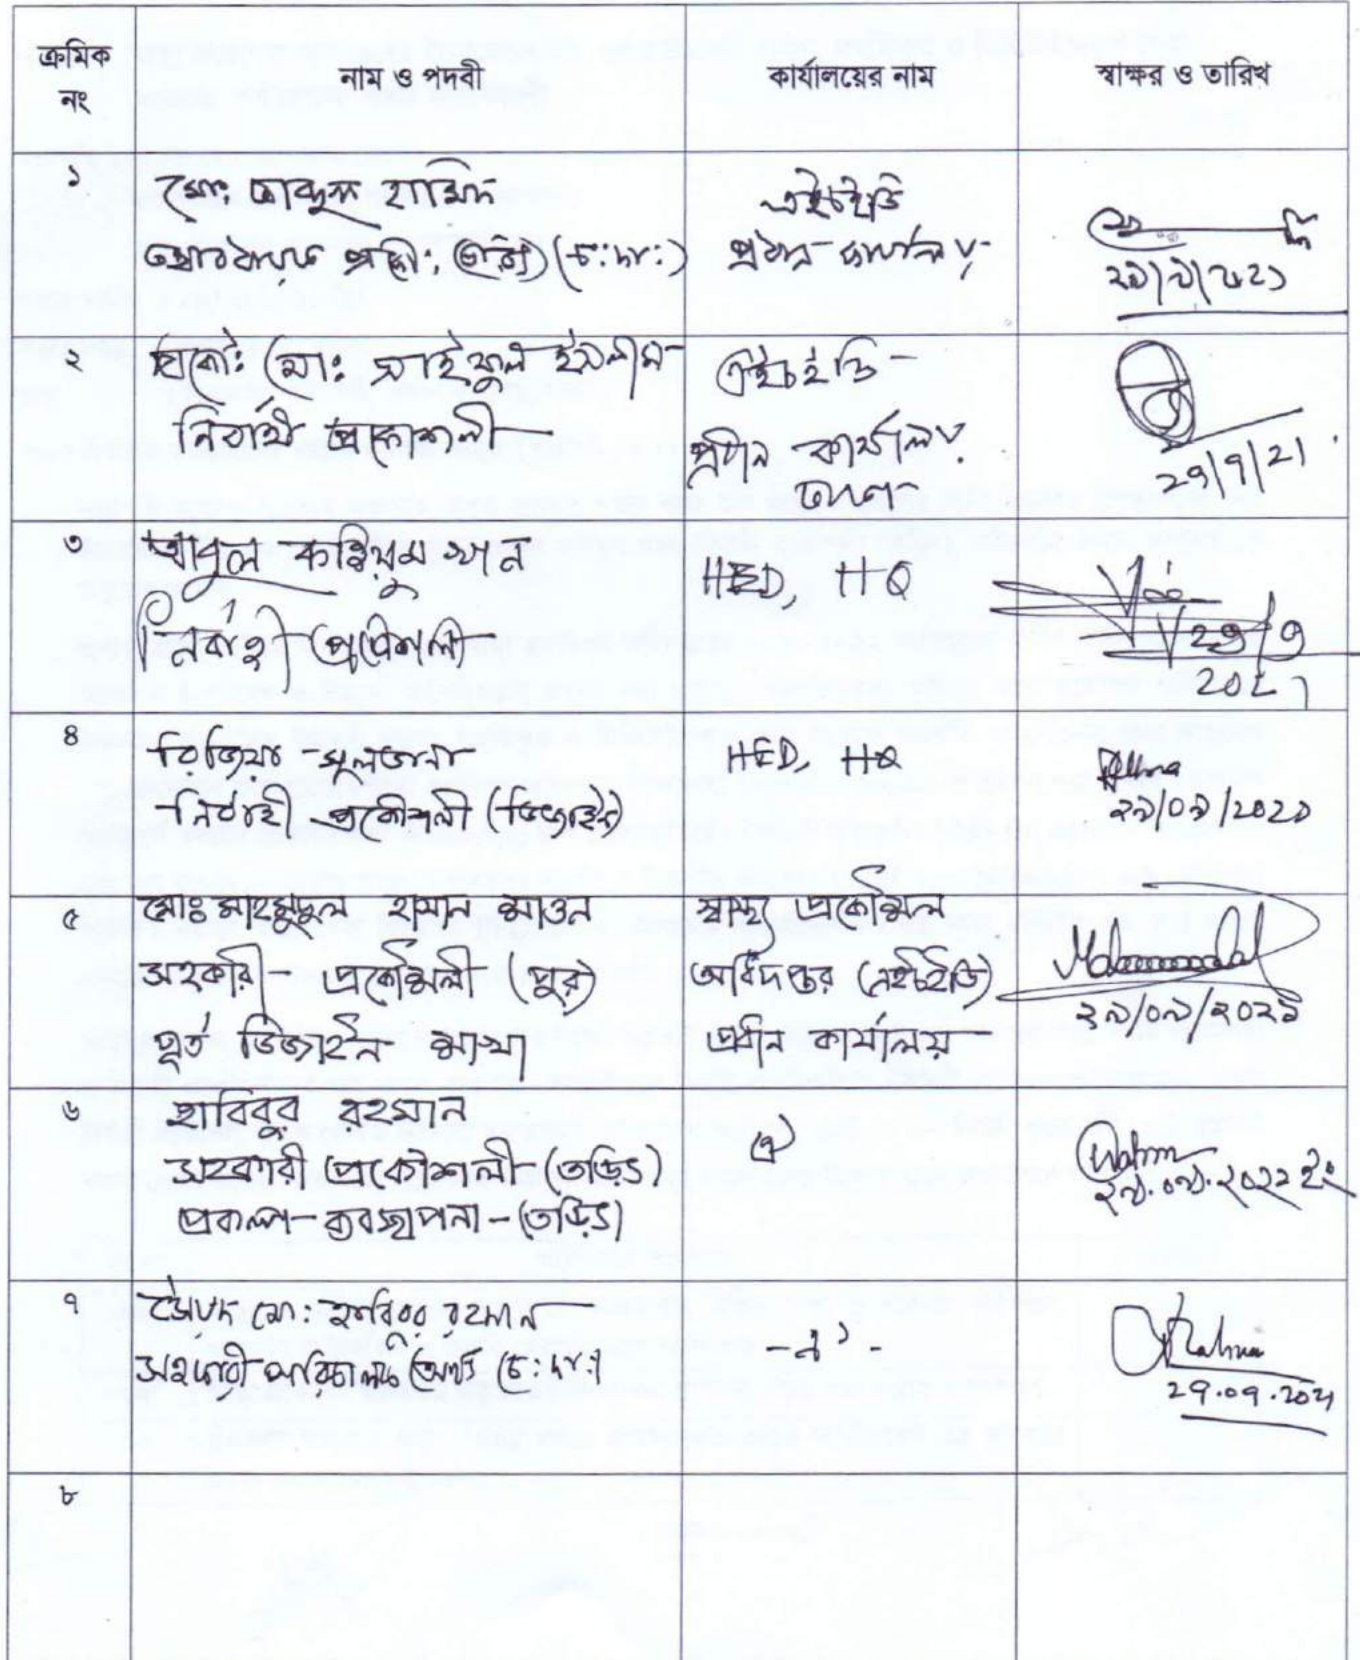 ক্রমিক নং
নাম ও পদবী
কার্যালয়ের নাম
স্বাক্ষর ও তারিখ
১
মোঃ আব্দুল হামিদ
তত্ত্বাবধায়ক প্রকৌ: (চ:দা:)
এইচইডি
প্রধান কার্যালয়
২৯/৯/২০২১
২
প্রকৌ: মোঃ সাইফুল ইসলাম
নির্বাহী প্রকৌশলী
এইচইডি
প্রধান কার্যালয়.
ঢাকা
29/9/21
৩
আবুল কাইয়ুম খান
নির্বাহী প্রকৌশলী
HED, HQ
29/9
2021
৪
রিজিয়া সুলতানা
নির্বাহী প্রকৌশলী (ডিজাইন)
HED, HQ
২৯/০৯/২০২১
৫
মোঃ মাহমুদুল হাসান শাওন
সহকারি প্রকৌশলী (পুর)
পূর্ত ডিজাইন শাখা
স্বাস্থ্য প্রকৌশল
অধিদপ্তর (এইচইডি)
প্রধান কার্যালয়
২৯/০৯/২০২১
৬
হাবিবুর রহমান
সহকারী প্রকৌশলী (তড়িৎ)
প্রকল্প-ব্যবস্থাপনা-(তড়িৎ)
ঐ
২৯.০৯.২০২১ ইং
৭
সৈয়দ মো: হাবিবুর রহমান
সহকারী পরিচালক (অর্থ) (চ:দা:)
-ঐ-
29.09.2021
৮